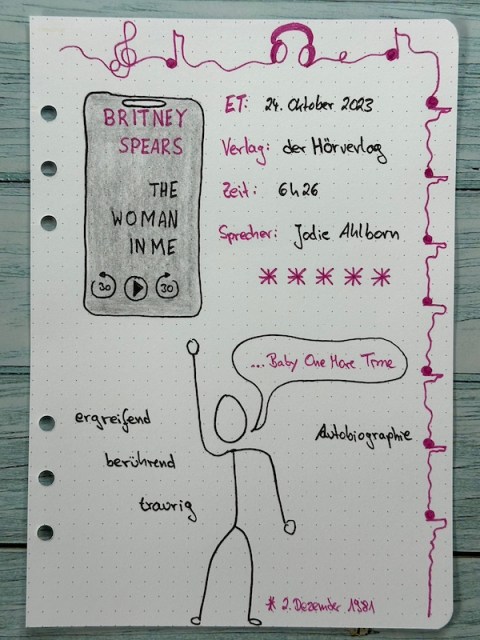 BRITNEY
SPEARS
THE
WOMAN
IN ME
30
30
ET: 24. Oktober 2023
Verlag: der Hörverlag
Zeit: 6h26
Sprecher: Jodie Ahlborn
*****
...Baby One More Time
ergreifend
berührend
traurig
Autobiographie
* 2. Dezember 1981